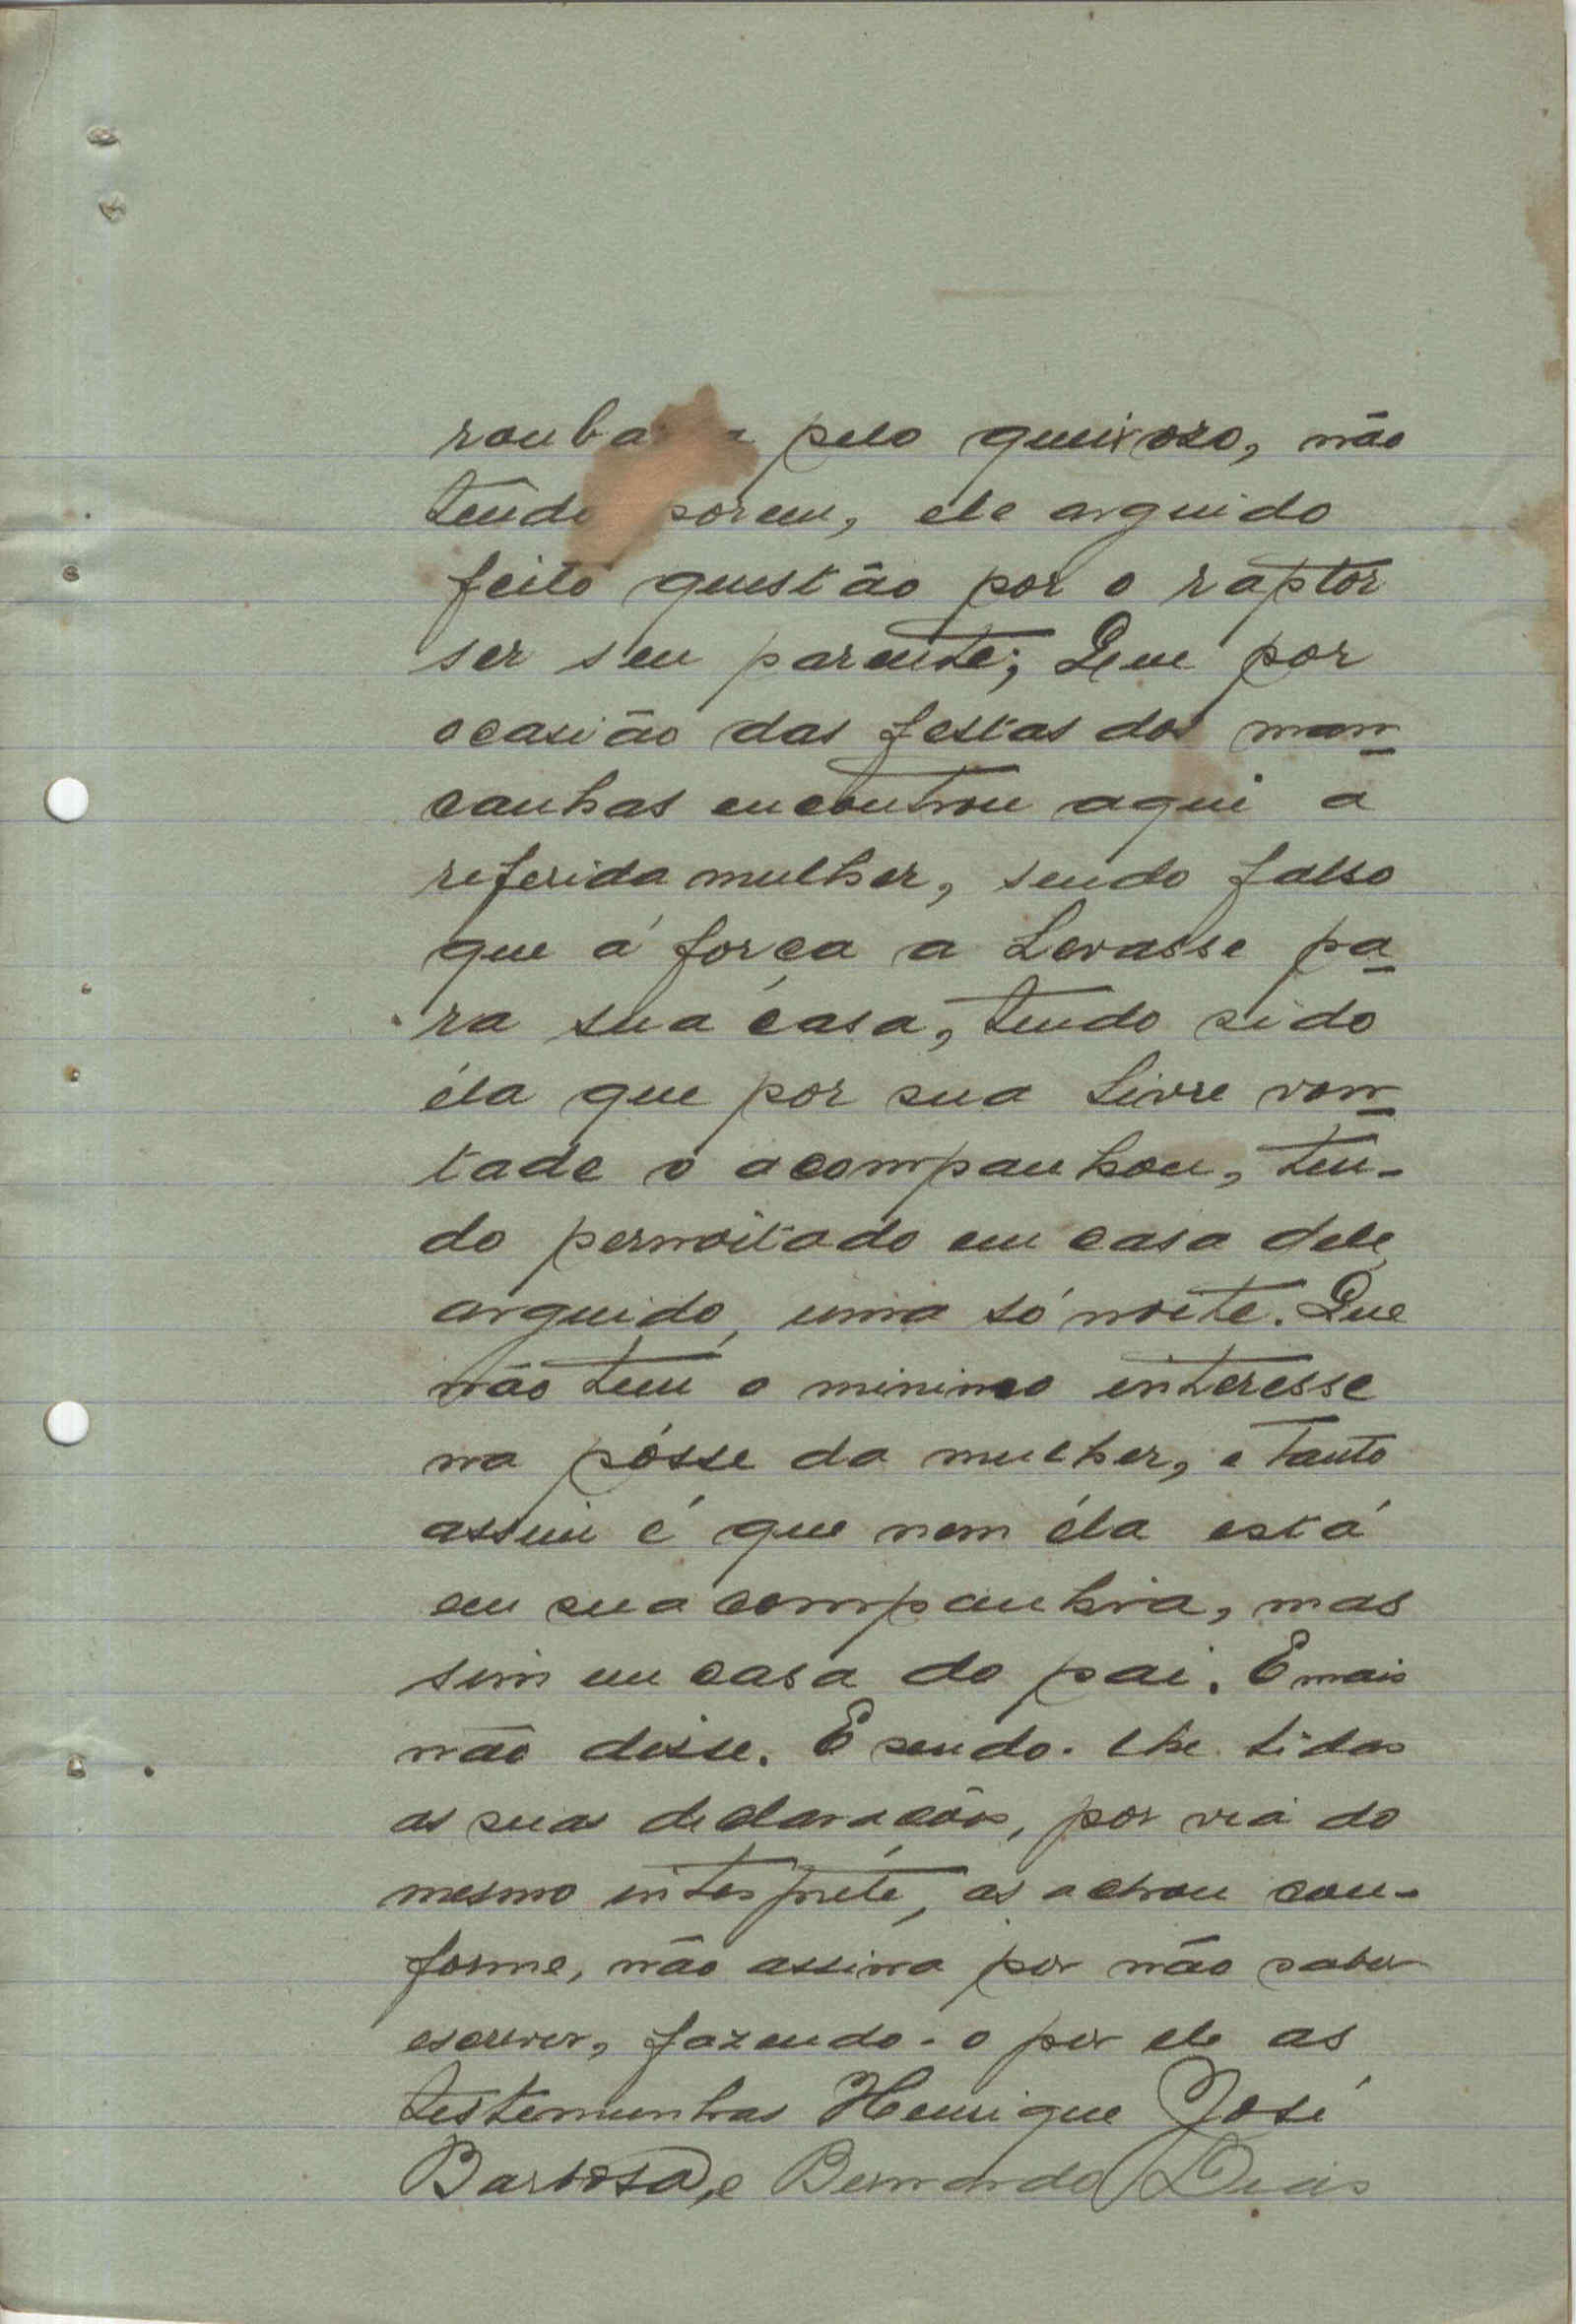 roubada pelo queixoso, não
tendo porem, ele arguido
feito questão por o raptor
ser seu parente; Que por
ocasião das festas dos man-
canhas encontrou aqui a
referida mulher, sendo falso
que á força a levasse pa-
ra sua casa, tendo sido
éla que por sua livre von-
tade o acompanhou, ten-
do pernoitado em casa dele
arguido, uma só noite. Que
não tem o minimo interesse
na pósse da mulher, e tanto
assim é que nem éla está
em sua companhia, mas
sim em casa do pai. E mais
não disse. E sendo-lhe lidas
as suas declarações, por via do
mesmo interprete, as achou con-
forme, não assina por não saber
escrever, fazendo-o por ele as
testemunhas Henrique José
Barbosa, e Bernardo Dias